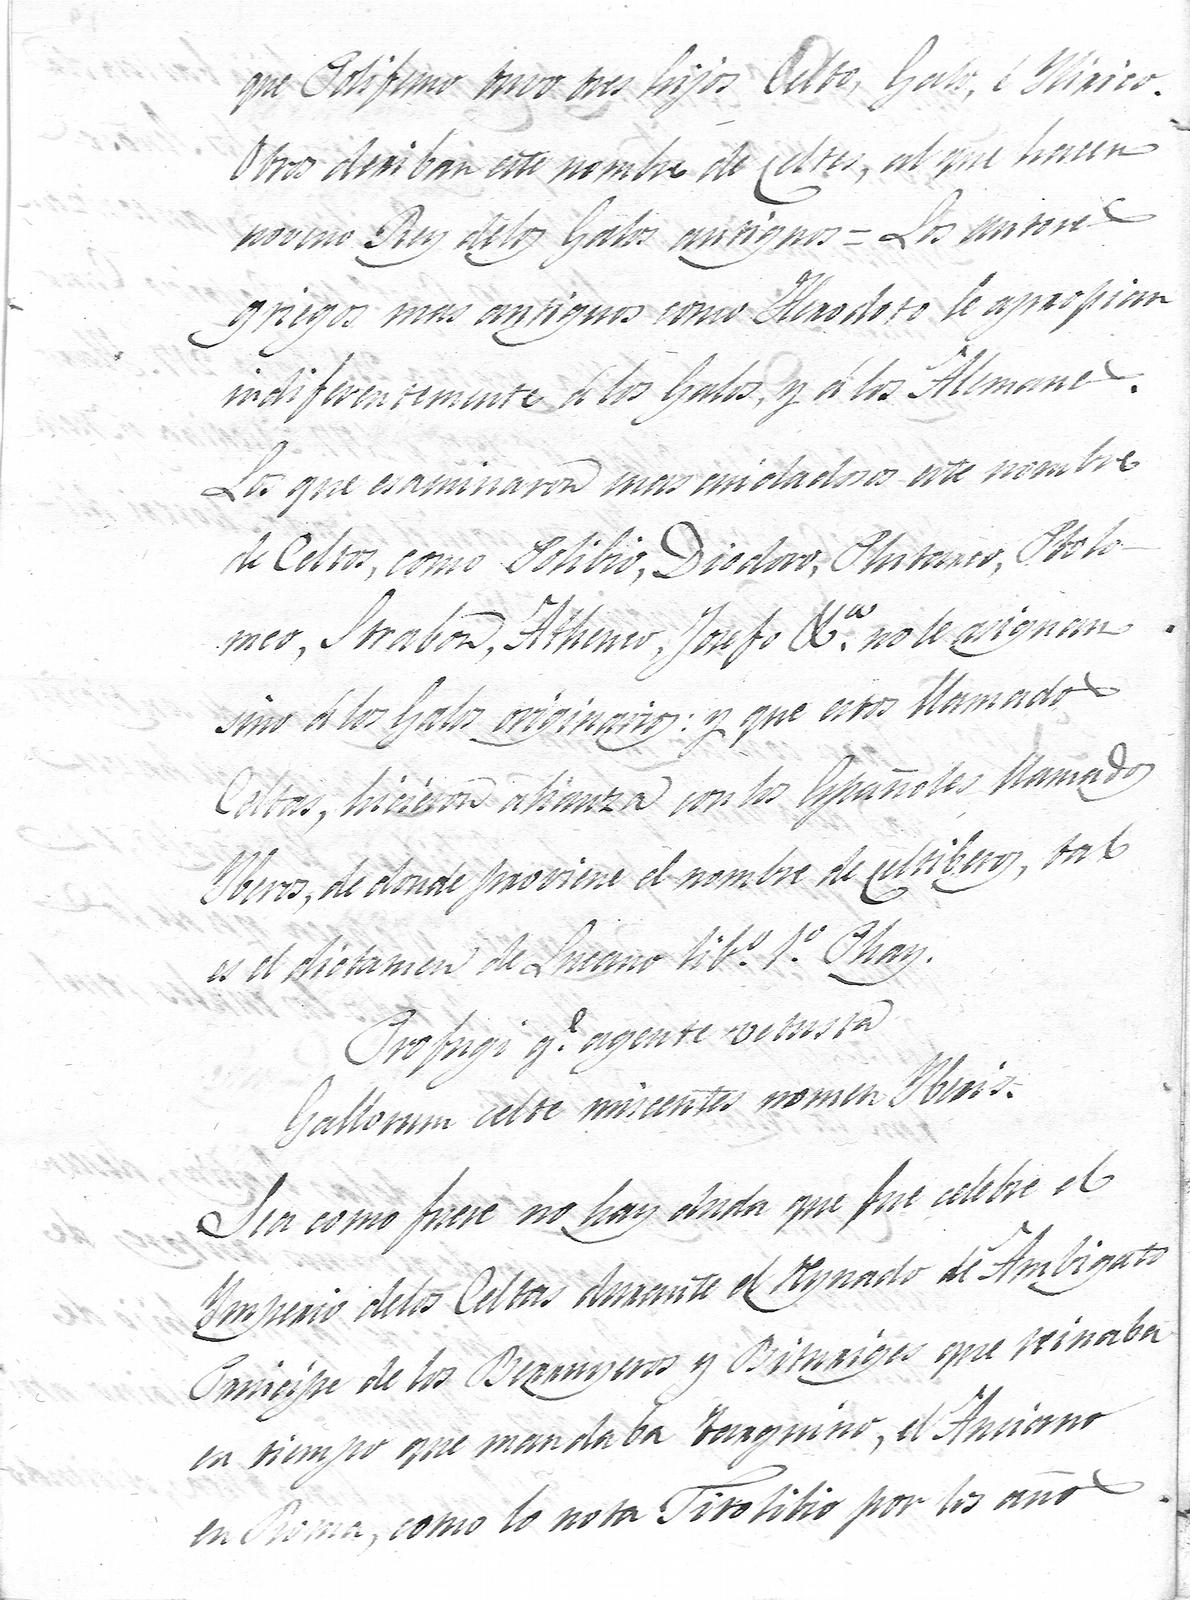 que Polifemo tuvo tres hijos Celto, Galo, é Ylirico.
Otros deriban este nombre de Celtes, al que hacen
noveno Rey delos Galos antiguos = Los autores
griegos mas antiguos como Herodoto le apropian
indiferentemente á los Galos, y á los Alemanes.
Los que esaminaron mas cuidadosos este nombre
de Celtos, como Polibio, Diodoro, Plutarco, Ptolo-
meo, Strabon, Atheneo, Josefo &.ª no le asignan
sino á los Galos originarios: y que estos llamados
Celtas, hicieron alianza con los Españoles llamados
Yberos, de donde proviene el nombre de Celtiberos, tal
es el dictamen de Lucano lib.º 1.º Phar.
Profugi q.e agente vetusta
Gallorum celte miscentes nomen Yberis.
Sea como fuese no hay duda que fue celebre el
Ymperio delos Celtas durante el Reynado de Ambigato
Principe de los Berruyeros y Bituriges que reinaba
en tiempo que mandaba Tarquino, el Anciano
en Roma, como lo nota Tito libio por los años